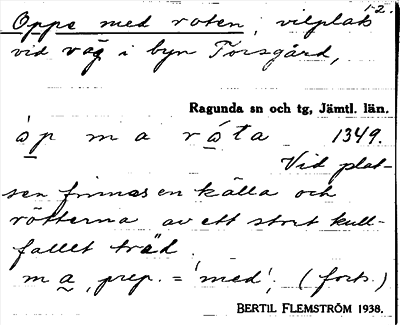 1-2.
Oppe med roten, vilplats
vid väg i byn Torsgård,
Ragunda sn och tg, Jämtl. län.
ȧp m a r ȧ ta 1349.
Vid plat-
sen finnes en källa och
rötterna av ett stort kull-
fallet träd.
m a, prep. = 'med'; (forts.)
BERTIL FLEMSTRÖM 1938.